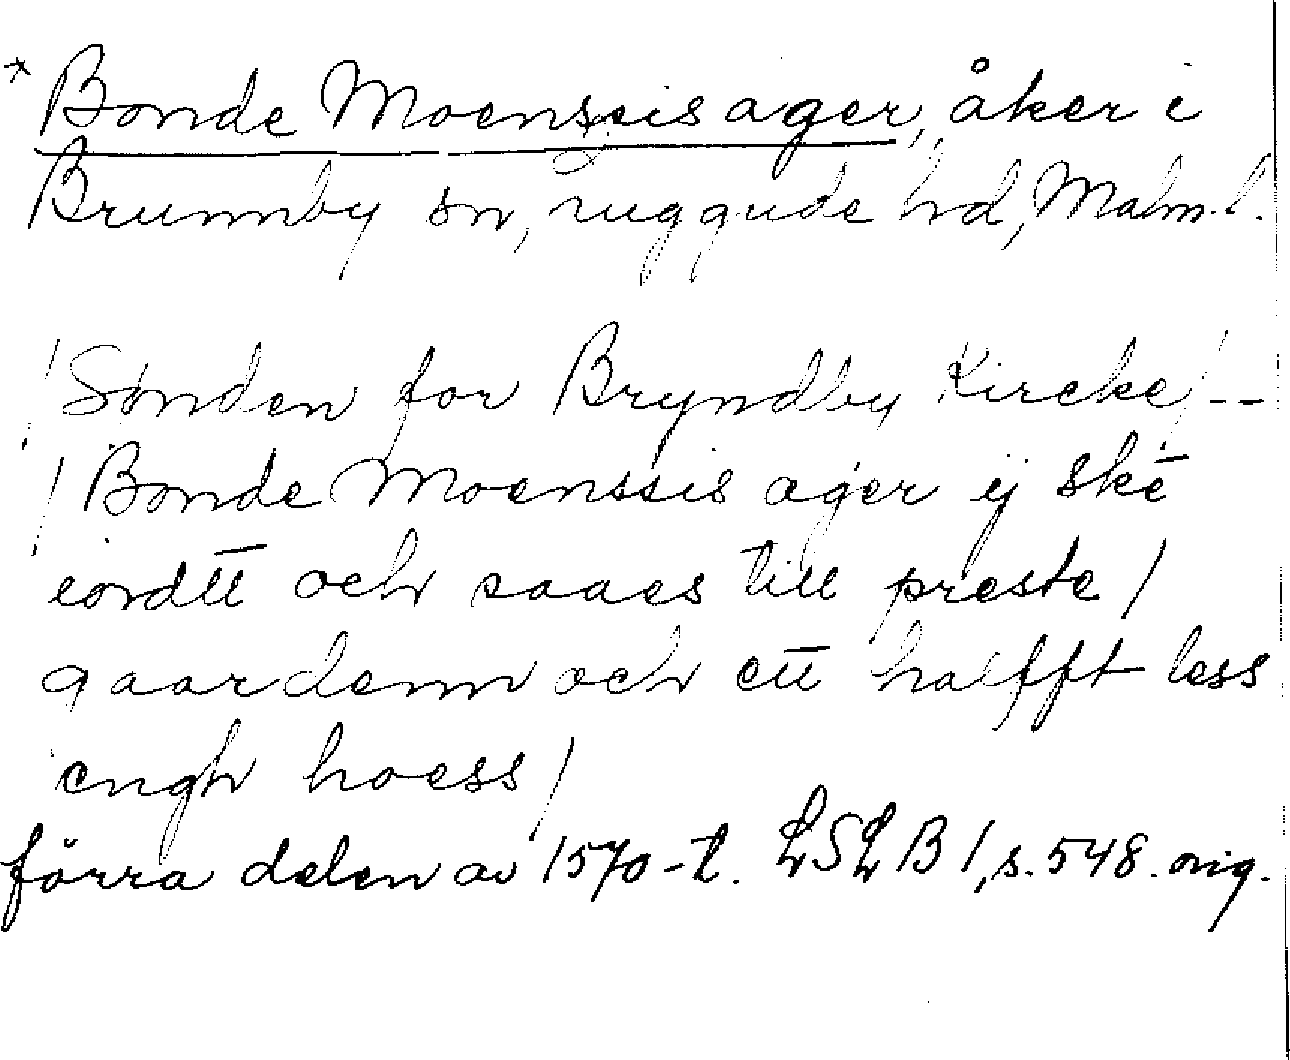 * Bonde Moenssis ager, åker i
Brunnby sn, Luggude hd, Malm. l.
/Sønden for Bryndby Kircke/--
/Bonde Moenssis ager ij skē
iordtt̄ och saaes till preste/
gaardenn och ett̄ halfft less
engh hoess/
förra delen av 1570-t. LSLB 1, s. 548. orig.